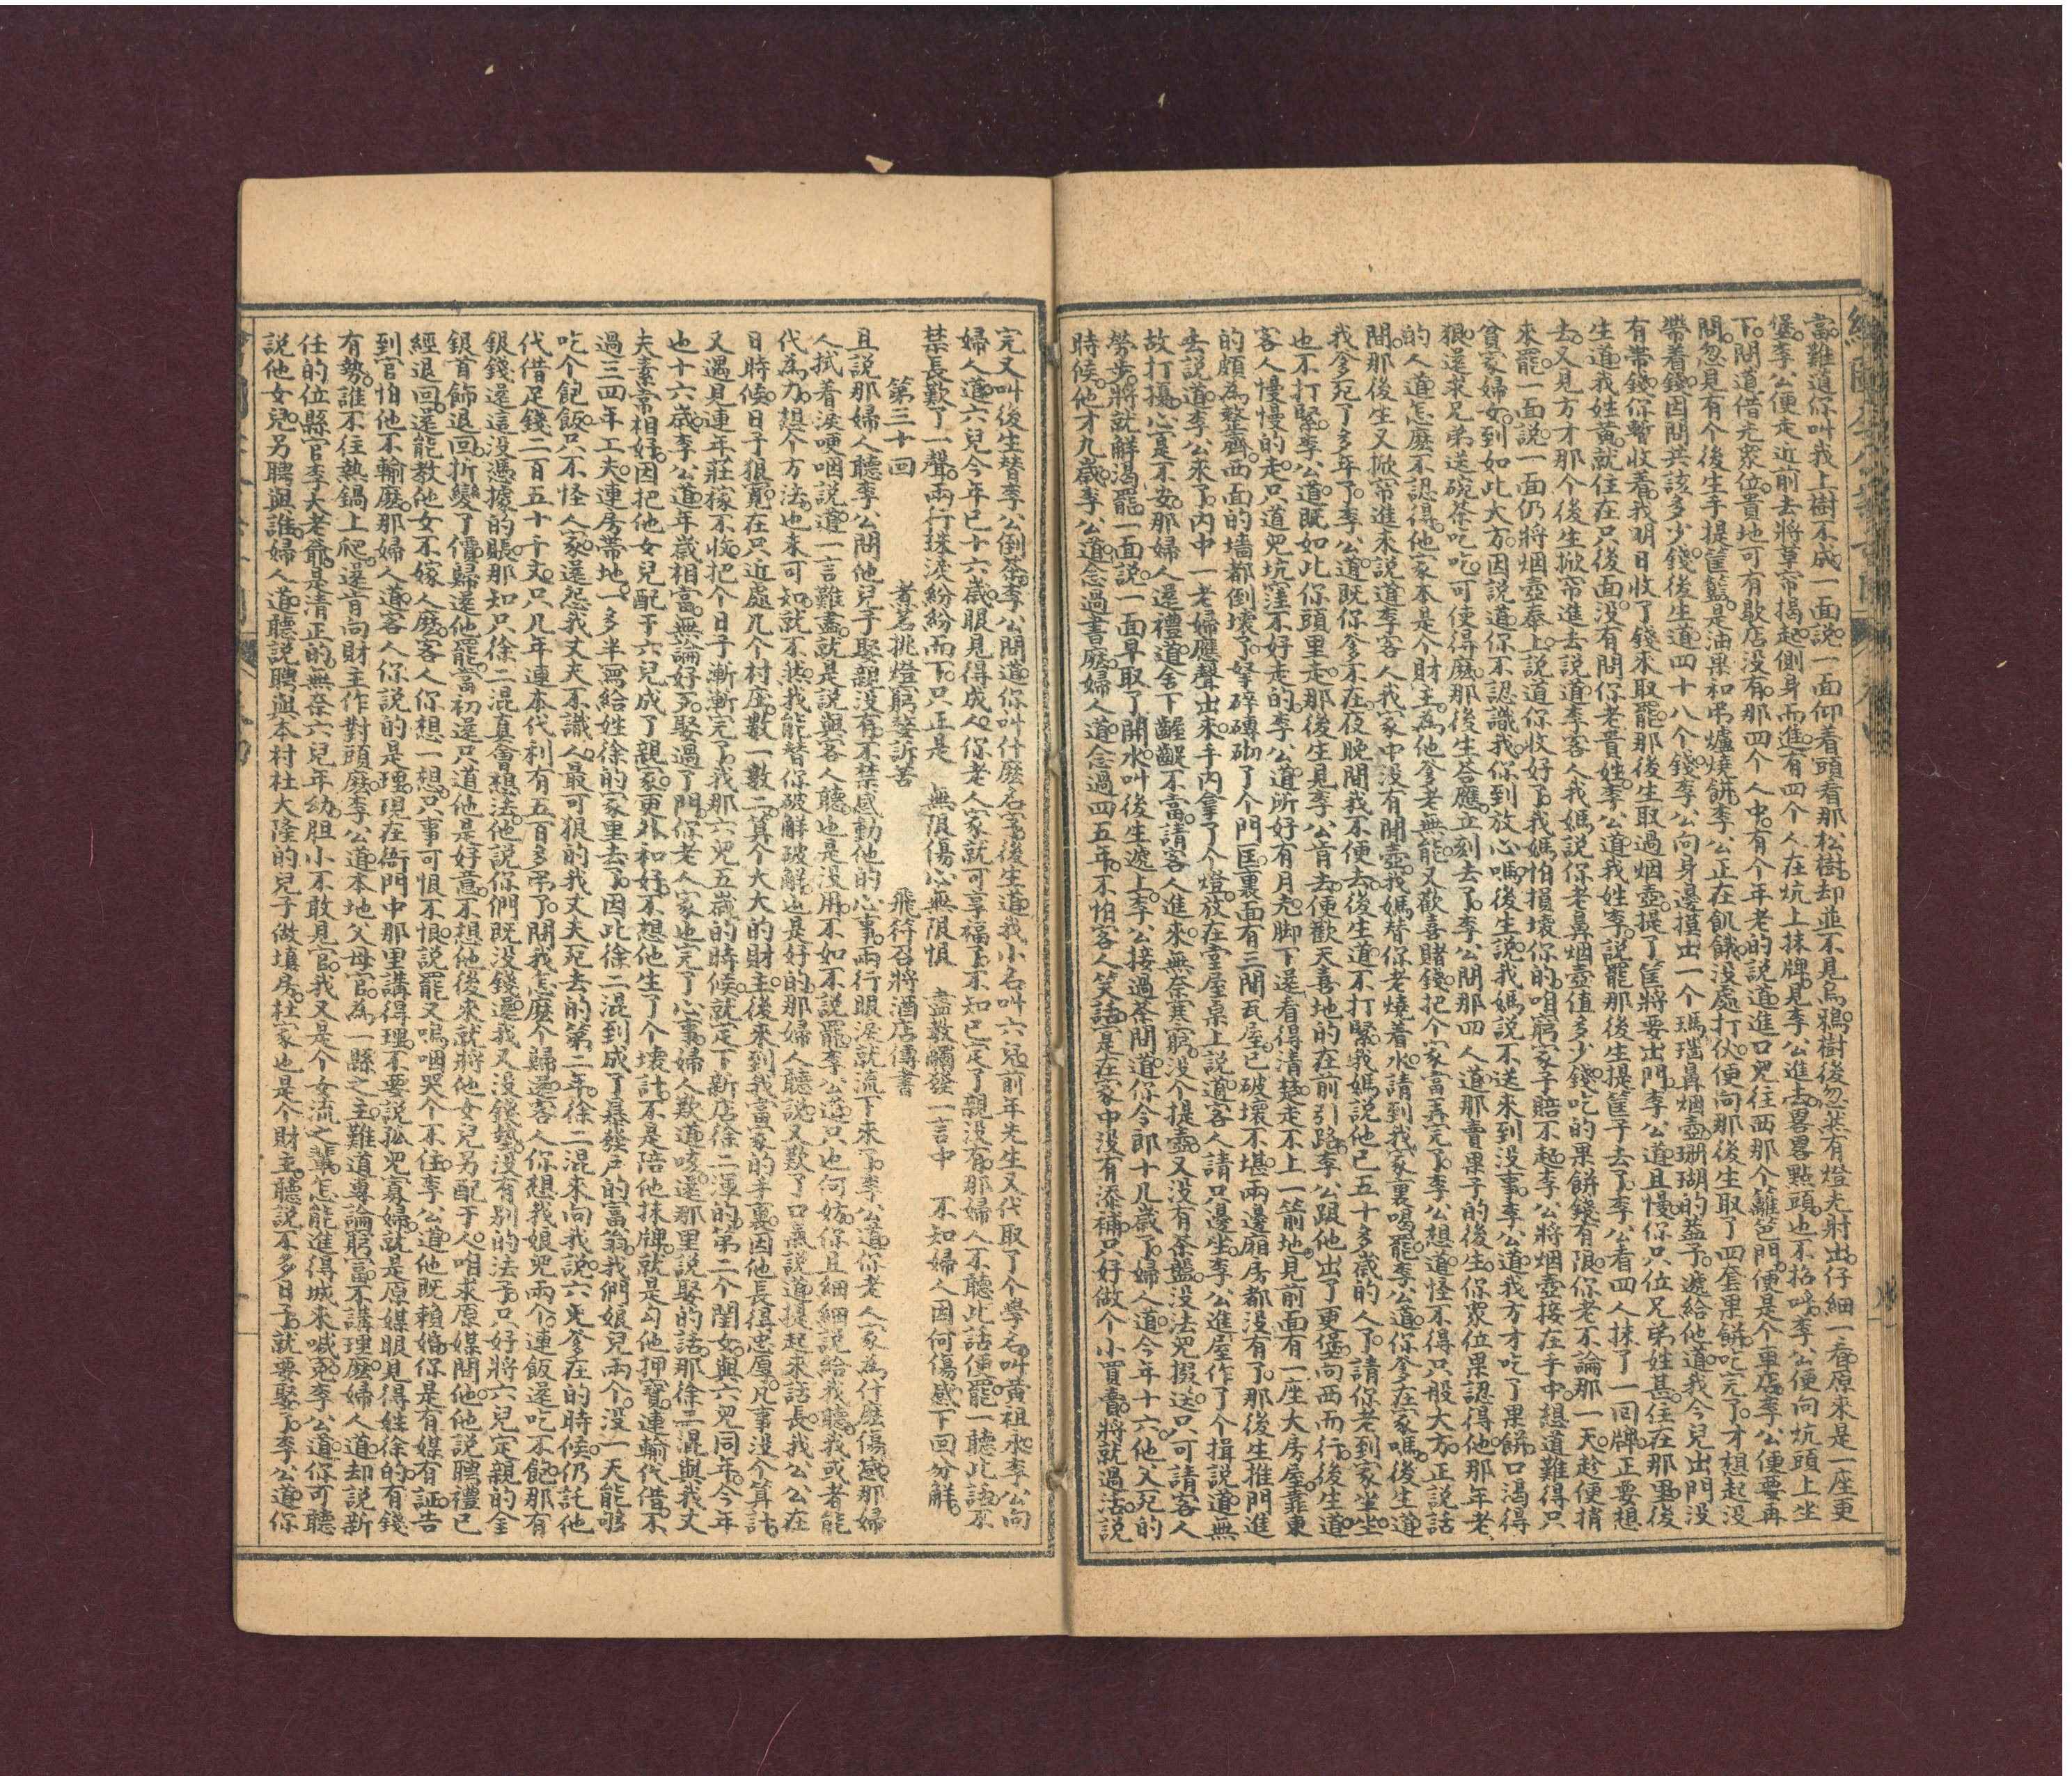 當難道你叫我上樹不成一面說一面仰着頭看那松樹却並不見烏鴉樹後忽然有燈光射出仔細一看原來是一座更
堡李公便走近前去將草帘揭起側身而進有四個人在坑上抹牌見李公進去畧畧點頭也不招呼李公便向坑頭上坐
下問道借光衆位貴地可有歇店没有那四个人中有个年老的說道進口兒往西那个籬笆門便是个車店李公便要再
問忽見有个後生手提筐籃是油菓和吊爐燒餅李公正在飢餓没處打伙便向那後生取了四套果餅吃完了才想起没
帶着錢因問共該多少錢後生道四十八个錢李公向身邊摸出一个瑪瑙鼻烟壺珊瑚的蓋子遞給他道我今兒出門没
有帶錢你暫收着我明日收了錢來取罷那後生取過烟壺提了筐將要出門李公道且慢你只位兄弟姓甚住在那里後
生道我姓黄就住在只後面没有問你老貴姓李公道我姓李說罷那後生提筐子去了李公看四人抹了一回牌正要想
去又見方才那个後生掀帘進去說道李客人我媽說你老鼻烟壺值多少錢吃的果餅錢有限你老不論那一天趁便捎
來罷一面說一面仍將烟壺奉上說道你收好了我媽怕損壞你的咱窮家子賠不起李公將烟壺接在手中想道難得只
貧家婦女到如此大方因說道你不認識我你到放心嗎後生說我媽說不送來到没事李公道我方才吃了果餅口渴得
狠還求兄弟送碗茶吃吃可使得麽那後生答應立刻去了李公問那四人道那賣果子的後生你衆位果認得他那年老
的人道怎麽不認得他家本是个財主為他爹老無能又歡喜賭錢把个家當弄完了李公想道怪不得只般大方正說話
間那後生又掀帘進來說道李客人我家中没有開壺我媽替你老燒着水請到我家裏喝罷李公道你爹在家嗎後生道
我爹死了多年了李公道既你爹不在夜晚間我不便去後生道不打緊我媽說他已五十多歲的人了請你老到家坐坐
也不打緊李公道既如此你頭里走那後生見李公肯去便歡天喜地的在前引路李公跟他出了更堡向西而行後生道
客人慢慢的走只道兒坑窪不好走的李公道所好有月光脚下還看得清楚走不上一箭地見前面有一座大房屋靠東
的頗為整齊西面的墻都倒壞了琴碎磚砌了个門匡裏面有三間瓦屋已破壞不堪兩邊廂房都没有了那後生推門進
去說道李公來了内中一老婦應聲出來手内拿了个燈放在堂屋桌上說道客人請只邊坐李公進屋作了个揖說道無
故打擾心是不安那婦人還禮道舍下齷齪不當請客人進來無奈寒窮没个提壺又没有茶盤没法兒掇送只可請客人
勞步將就解渴罷一面說一面早取了開水叫後生遞上李公接過茶問道你令郎十几歲了婦人道今年十六他父死的
時候他才九歲李公道念過書麽婦人道念過四五年不怕客人笑話是在家中没有添補只好做个小買賣將就過活說
完又叫後生替李公倒茶李公問道你叫什麽名字後生道我小名叫六兒前年先生又代取了个學名叫黄祖永李公向
婦人道六兒今年已十六歲眼見得成人你老人家就可享福了不知已定了親没有那婦人不聽此話便罷一聽此話不
禁長歎了一聲兩行珠淚紛紛而下只正是　無限傷心無限恨　盡教觸發一言中　不知婦人因何傷感下回分解
第三十回　煮茗挑燈窮嫠訴苦　飛符召將酒店傳書
且說那婦人聽李公問他兒子娶親没有不禁感動他的心事兩行眼淚就流下來了李公道你老人家為什麽傷感那婦
人拭着淚哽咽說道一言難盡就是說與客人聽也是没用不如不說罷李公道只也何妨你且細細說給我聽我或者能
代為力想个方法也未可知就不然我能替你破解破解也是好的那婦人聽說又歎了口氣說道提起來話長我公公在
日時候日子狠寬在只近處几个村庄數一數二算个大大的財主後來到我當家的手裏因他長得忠厚凡事没个算計
又遇見連年莊稼不收把个日子漸漸完了我那六兒五歲的時候就定下新店徐二渾的第二个閨女與六兒同年今年
也十六歲李公道年歲相當無論好歹娶過了門你老人家也完了心事婦人歎道咳還那里說娶的話那徐二混與我丈
夫素常相好因把他女兒配于六兒成了親家更外和好不想他生了个壞計不是陪他抹牌就是勾他押寶連輸代借不
過三四年工夫連房帶地一多半寫給姓徐的家里去了因此徐二混到成了暴發戶的富翁我們娘兒兩个没一天能够
吃个飽飯只不怪人家還怨我丈夫不識人最可狠的我丈夫死去的第二年徐二混來向我說六兒爹在的時候仍託他
代借足錢二百五十千文只几年連本代利有五百多吊了問我怎麽个歸還客人你想我娘兒兩个連飯還吃不飽那有
銀錢還這没憑據的賬那知只徐二混真會想法他說你們既没錢還我又没錢墊没有别的法子只好將六兒定親的金
銀首飾退回折變了價歸還他罷當初還只道他是好意不想他後來就將他女兒另配于人咱求原媒問他他說聘禮已
經退回還能教他女不嫁人麽客人你想一想只事可恨不恨說罷又嗚咽哭个不住李公道他既賴婚你是有媒有証告
到官怕他不輸麽那婦人道客人你說的是理現在衙門中那里講得理不要說孤兒寡婦就是原媒眼見得姓徐的有錢
有勢誰不往熱鍋上爬還肯向財主作對頭麽李公道本地父母官為一縣之主難道專論貧富不講理麽婦人道却說新
任的位縣官李大老爺是清正的無奈六兒年幼胆小不敢見官我又是个女流之輩怎能進得城來喊冤李公道你可聽
說他女兒另聘與誰婦人道聽說聘與本村杜大隆的兒子做填房杜家也是个財主聽說不多日子就要娶了李公道你